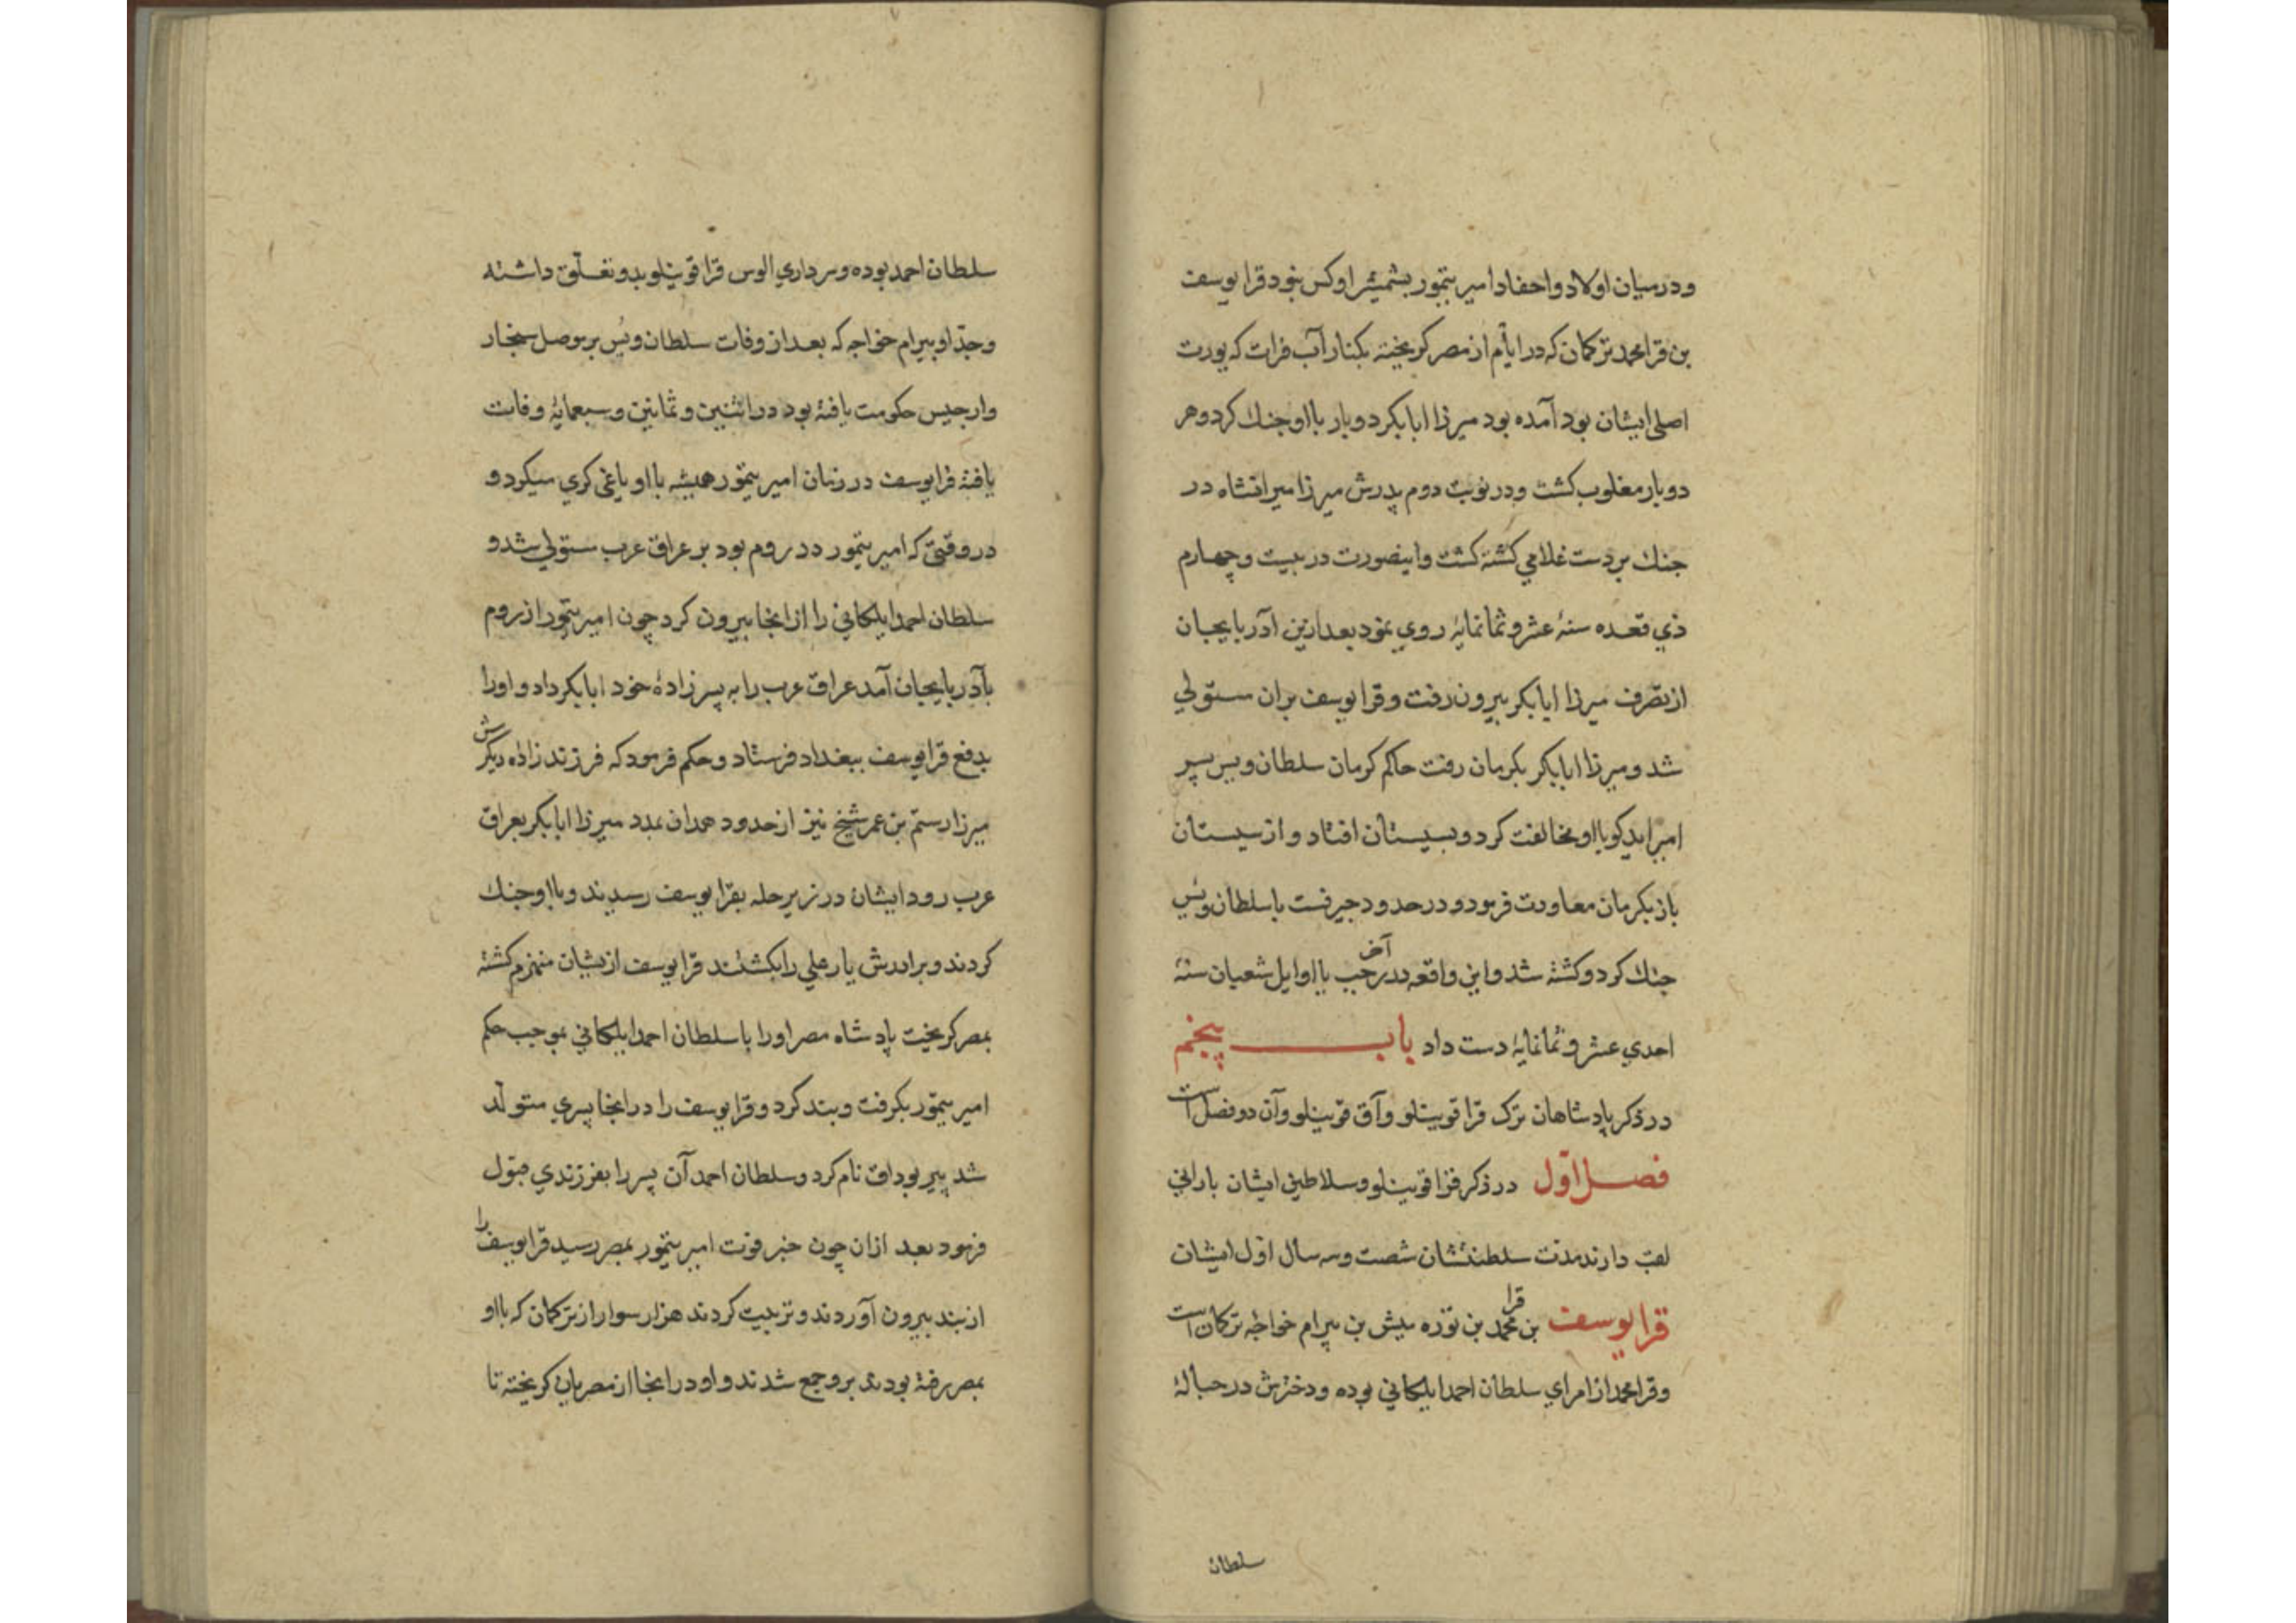 ودرمیان اولاد واحفاد امیر تیمور بشمشیر او کس نبود قرا یوسف
بن قرا محمد ترکمان که در ایّام از مصر کریخته بکنار آب فرات که یورت
اصلی ایشان بود آمده بود میرزا ابابکر دوبار بااو جنك کرد وهر
دوبار مغلوب کشت ودر نوبت دوم پدرش میرزا میرانشاه در
جنك بر دست غلامی کشته کشت واینصورت در بیست وچهارم
ذی قعده سنهٔ عشر وثمانمایهٔ روی نمود بعد ازین آذربایجان
از تصرف میرزا ابابکر بیرون رفت وقرا یوسف بران مستولی
شد ومیرزا ابابکر بکرمان رفت حاکم کرمان سلطان ویس پسر
امیر ایدکو بااو مخالفت کرد وبسیستان افتاد واز سیستان
باز بکرمان معاودت فرمود ودر حدود جیرفت باسلطان ویس
جنك کرد وکشته شد واین واقعه در آخر رجب یا اوایل شعبان سنهٔ
احدی عشر وثمانمایهٔ دست داد باب پنجم
در ذکر پادشاهان ترک قراقوینلو وآق قوینلو وآن دو فصل است
فصل اوّل در ذکر قراقوینلو وسلاطین ایشان بارانی
لقب دارند مدت سلطنتشان شصت وسه سال اوّل ایشان
قرا یوسف بن قرا محمد بن توره میش بن بیرام خواجه ترکمان است
وقرا محمد از امرای سلطان احمد ایلکانی بوده ودخترش در حبالهٔ
سلطان
سلطان احمد بوده وسرداری الوس قراقوینلو بدو تعلّق داشته
وجدّ او بیرام خواجه که بعد از وفات سلطان ویس بر موصل سنجار
وارجیس حکومت یافتهٔ بود در اثنین وثمانین وسبعمایهٔ وفات
یافتهٔ قرا یوسف در زمان امیر تیمور همیشه بااو یاغی کری میکرد و
در وقتی که امیر تیمور در روم بود بر عراق عرب مستولی شد و
سلطان احمد ایلکانی را از انجا بیرون کرد چون امیر تیمور از روم
بآذربایجان آمد عراق عرب را به پسر زادهٔ خود ابابکر داد واورا
بدفع قرا یوسف ببغداد فرستاد وحکم فرمود که فرزند زاده دیکرش
میرزا رستم بن عمر شیخ نیز از حدود همدان بمدد میرزا ابابکر بعراق
عرب رود ایشان در زیر حله بقرا یوسف رسیدند وبااو جنك
کردند وبرادرش یار علی را بکشتند قرا یوسف ازیشان منهزم کشتهٔ
بمصر کریخت پادشاه مصر اورا باسلطان احمد ایلکانی بموجب حکم
امیر تیمور بکرفت وبند کرد وقرا یوسف را در انجا پسری متولّد
شد پیر بوداق نام کرد وسلطان احمد آن پسر را بفرزندی قبول
فرمود بعد ازان چون خبر فوت امیر تیمور بمصر رسید قرا یوسف را
از بند بیرون آوردند وتربیت کردند هزار سوار از ترکمان که بااو
بمصر رفتهٔ بودند برو جمع شدند واو در انجا از مصریان کریخته تا